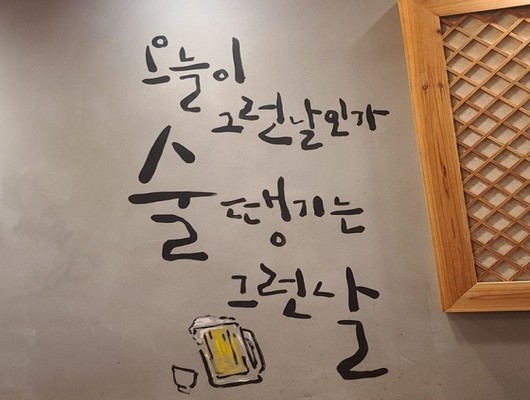 오늘이
그런날인가
술 땡기는
그런날